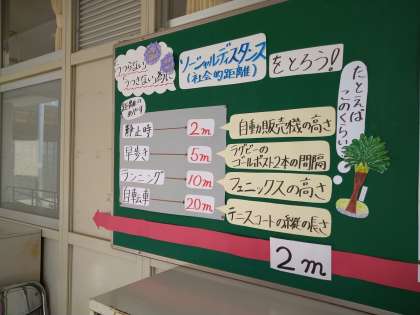 うつらない
うつさない為に
ソーシャルディスタンス
(社会的距離)
をとろう!
たとえば
このくらい
距離の
めやす
静止時 2m 自動販売機の高さ
早歩き 5m ラグビーの
ゴールポスト2本の間隔
ランニング 10m フェニックスの高さ
自転車 20m テニスコートの縦の長さ
2m